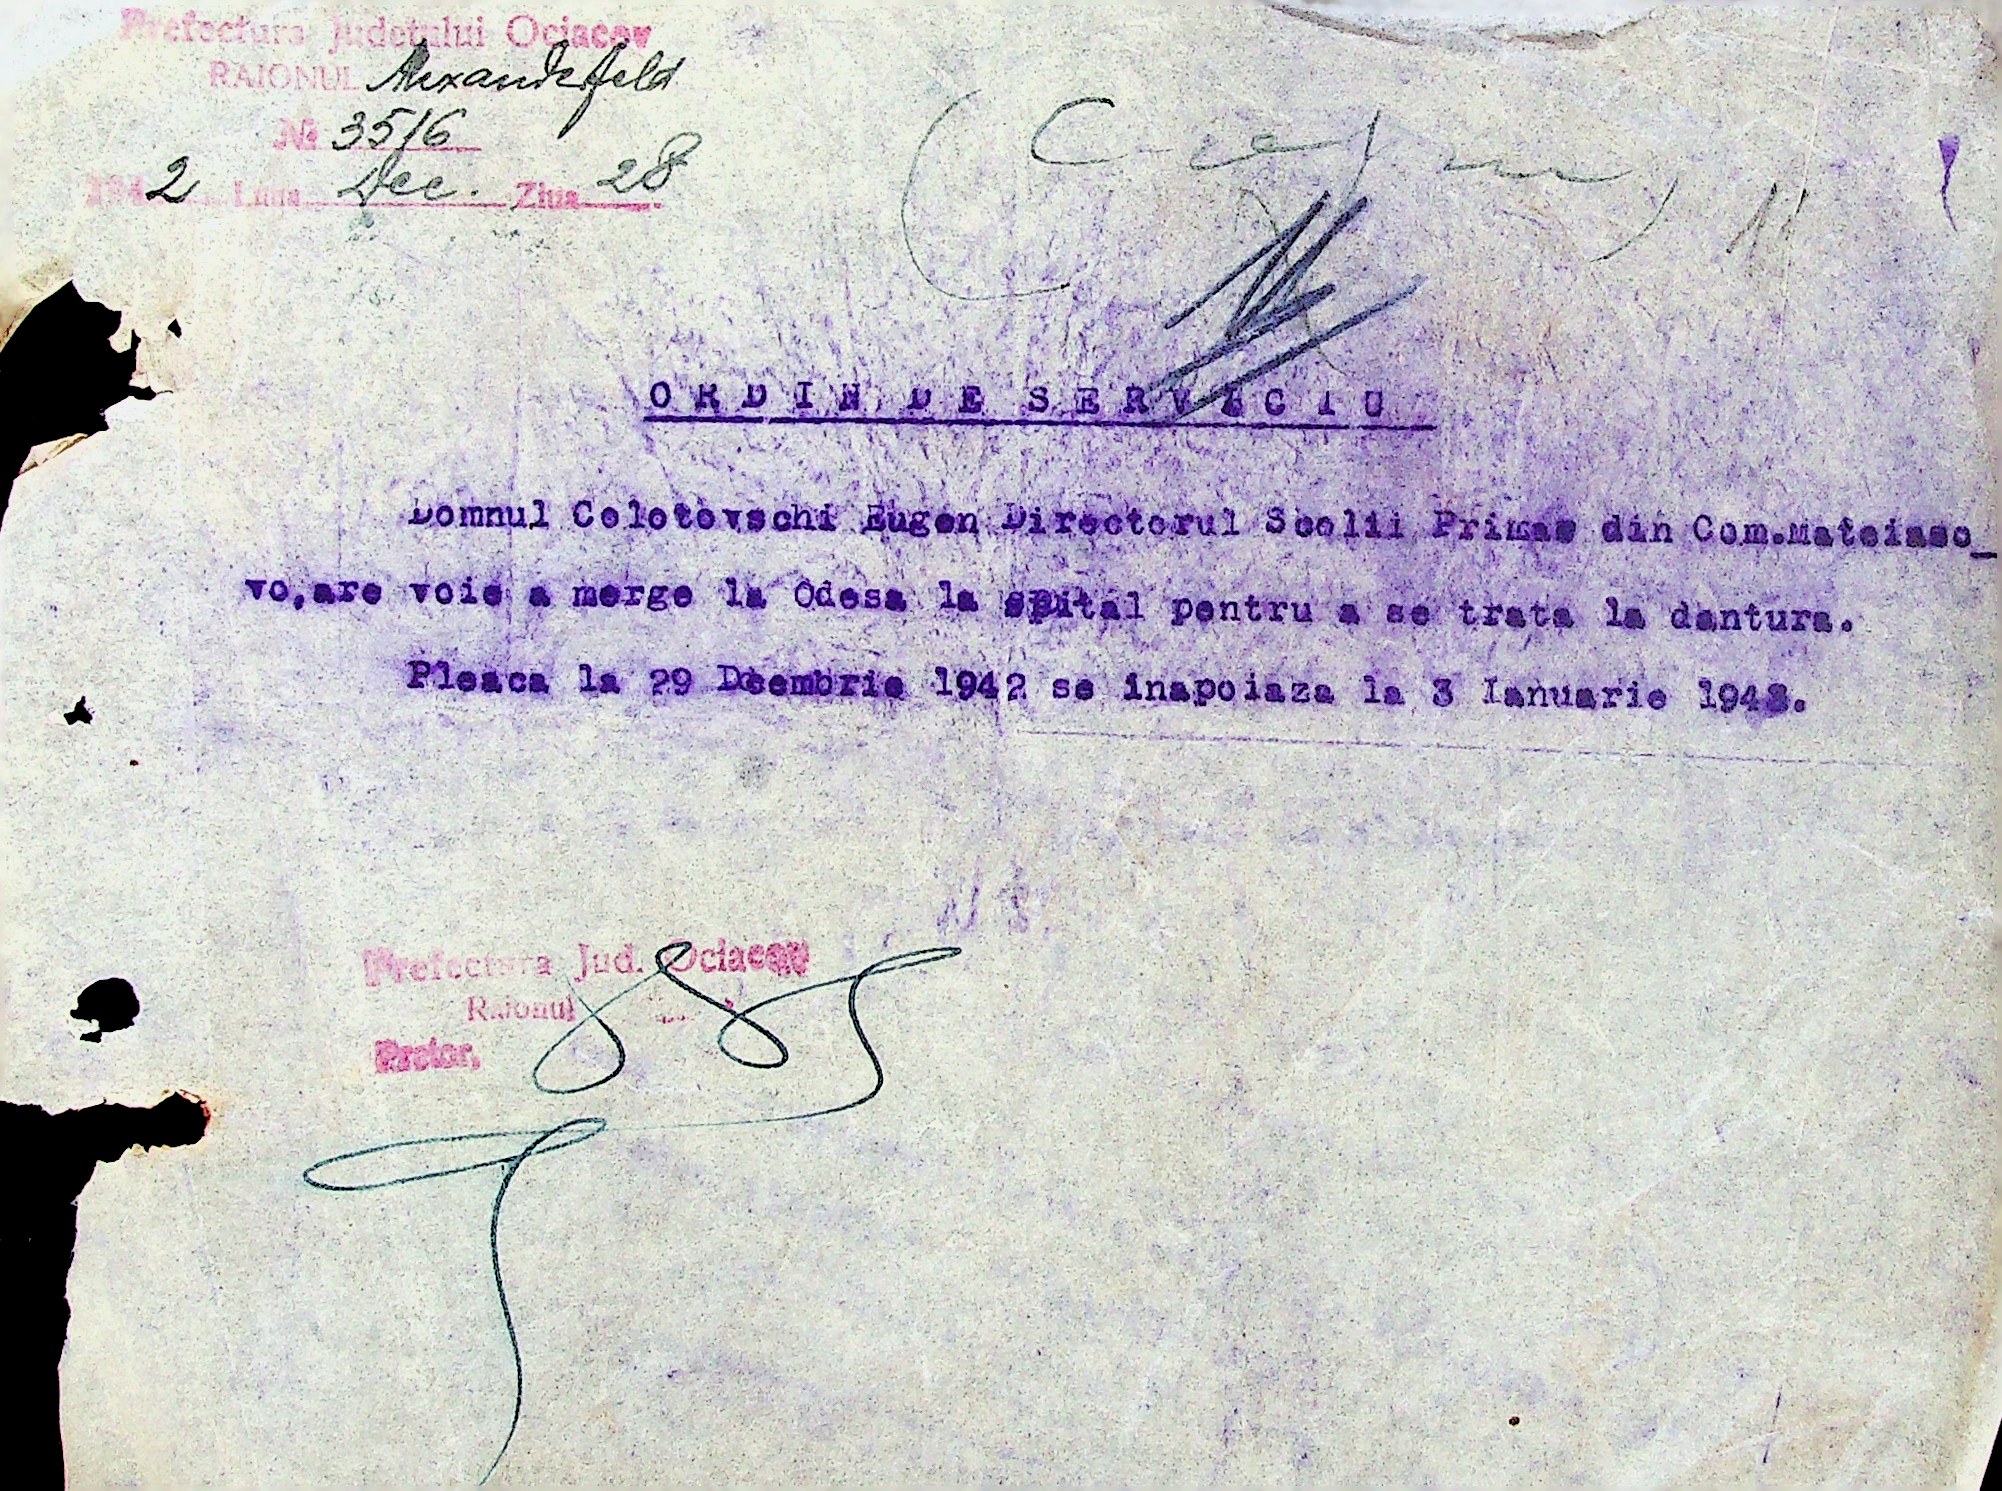 Prefectura Judetului Ociacov
RAIONUL Alexanderfeld
№ 3516
1942 Luna Dec. Ziua 28
ORDIN DE SERVICIU
Domnul Colotovschi Eugen Directorul Scolii Primae din Com.Mateiaso_
vo,are voie a merge la Odesa la spital pentru a se trata la dantura.
Pleaca la 29 Dcembrie 1942 se inapoiaza la 3 Ianuarie 1943.
Prefectura Jud. Ociacov
Raionul
Pretor,